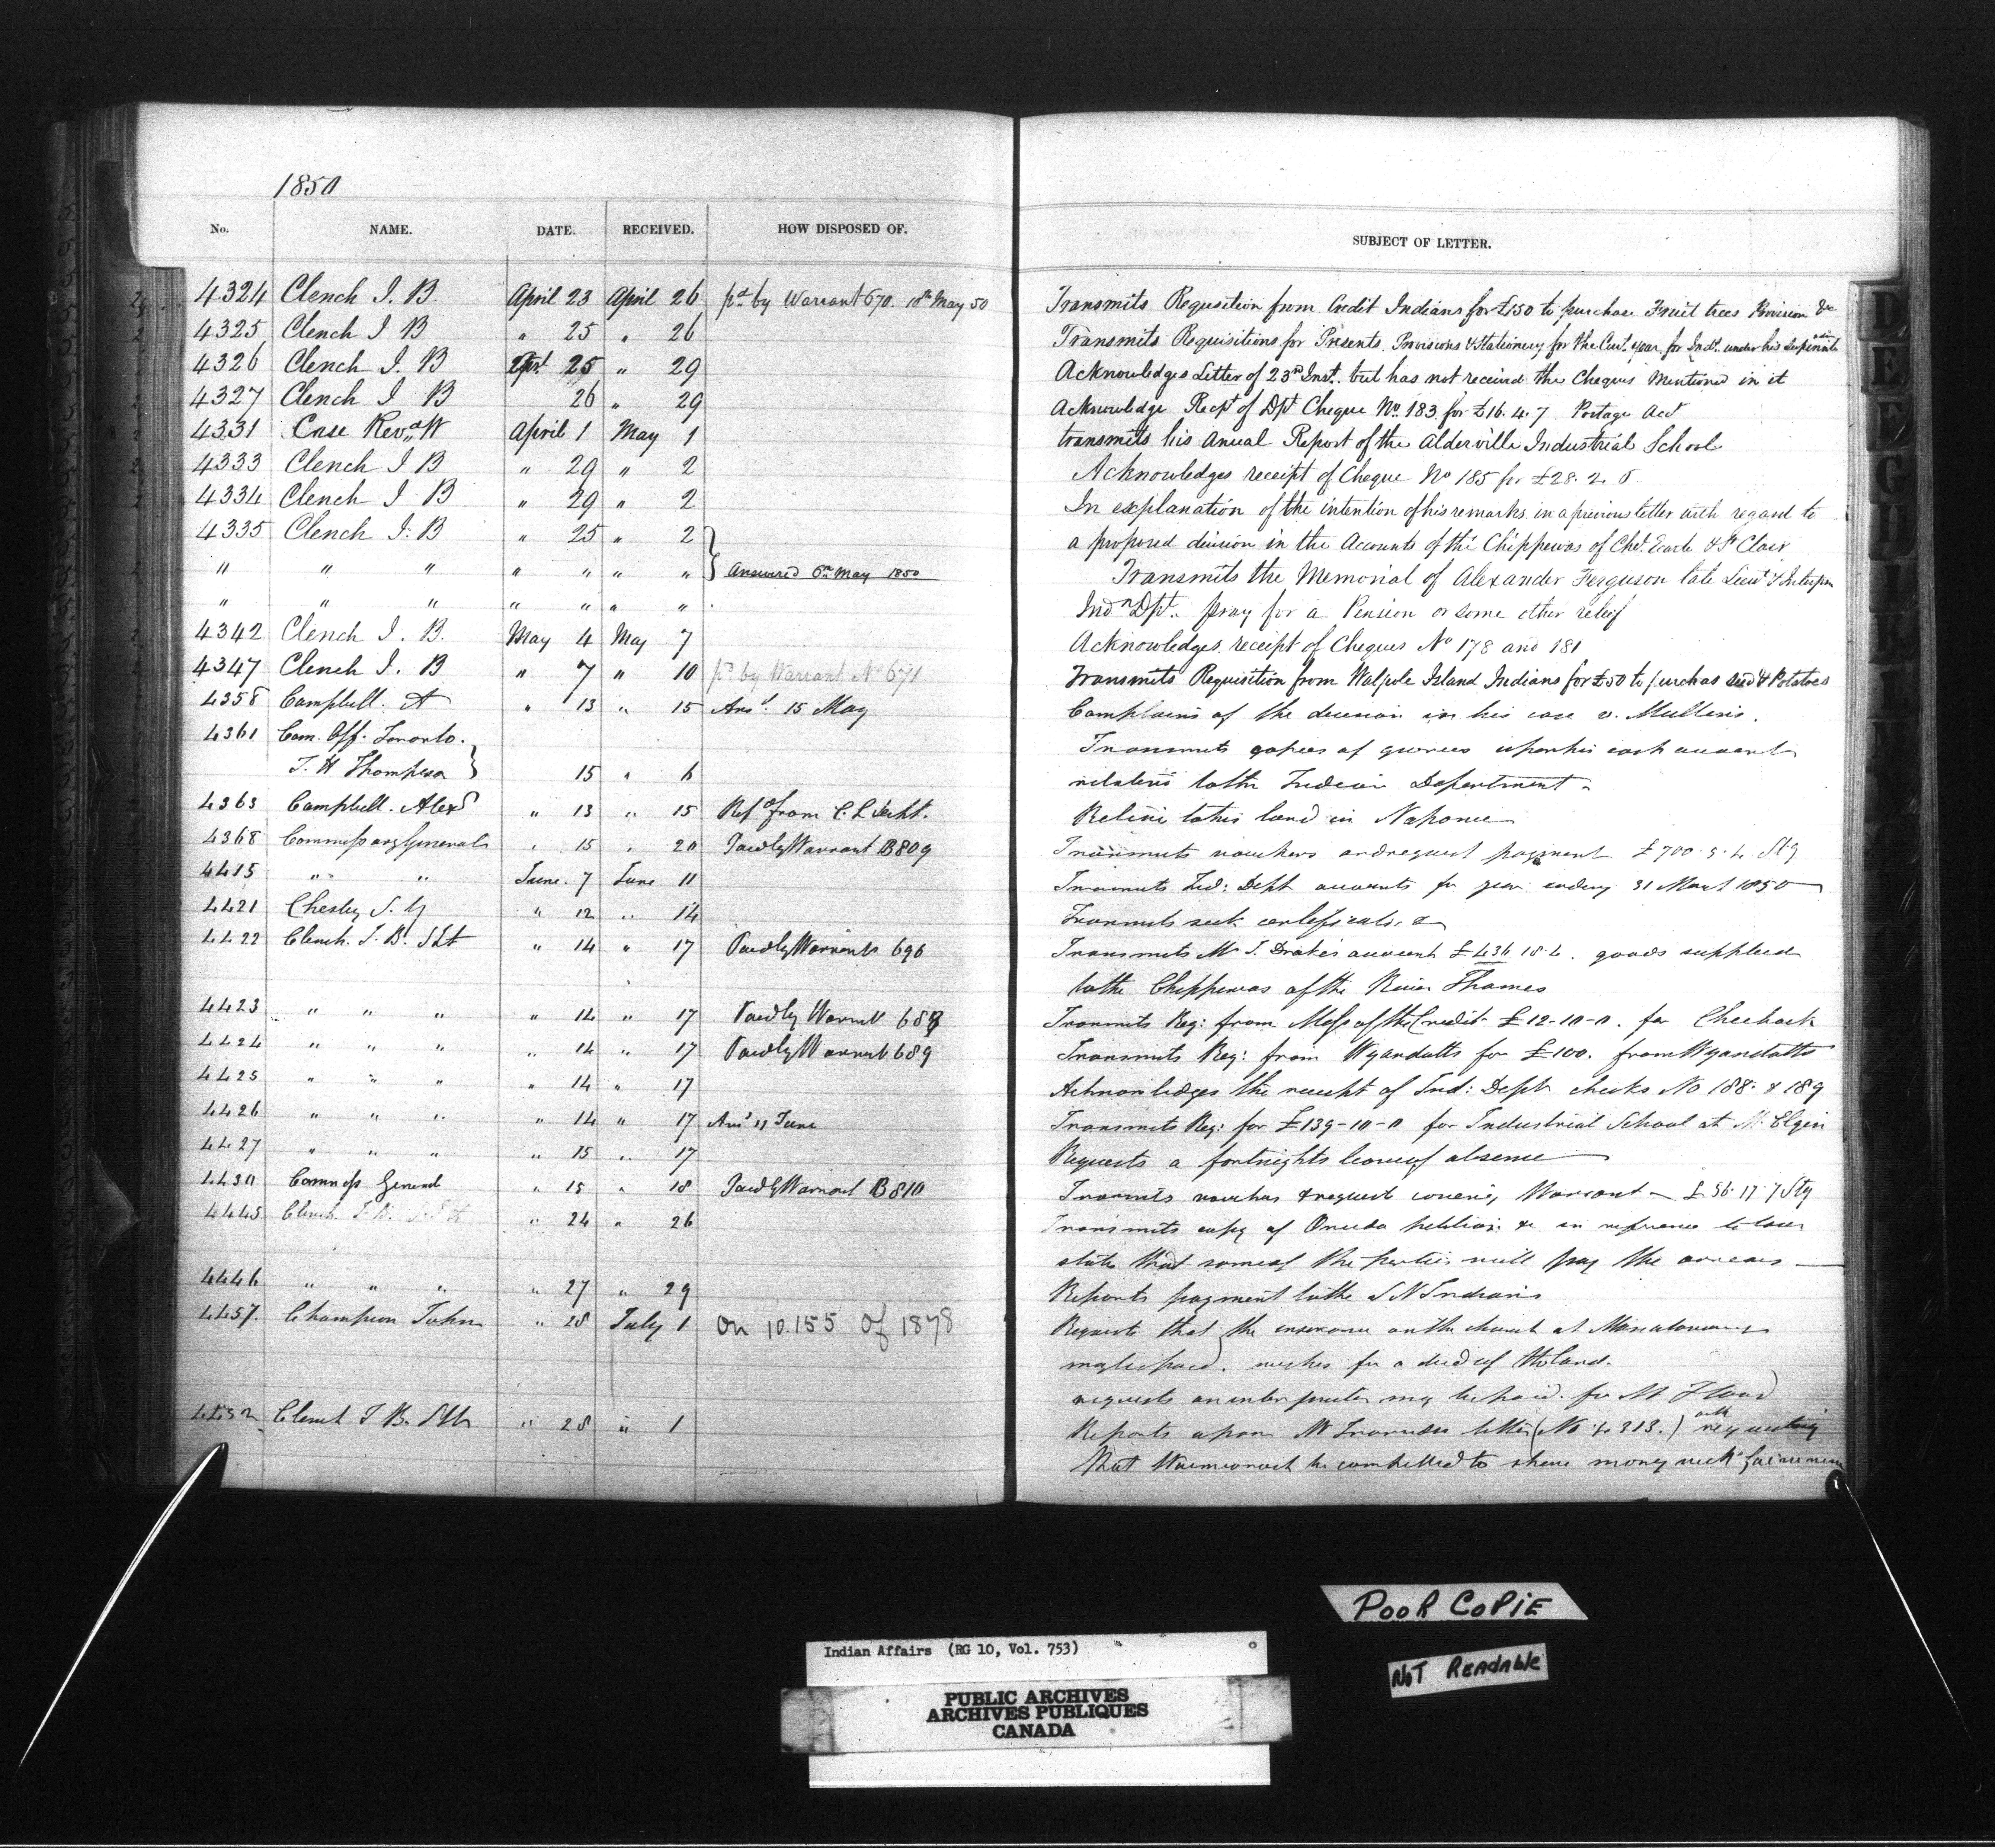 1850
No. NAME. DATE. RECEIVED. HOW DISPOSED OF. SUBJECT OF LETTER.
4324 Clench J. B. April 23 April 26 pd by Warrant 670. 10th May 50 Transmits Requisition from Credit Indians for £150 to purchase Fruit trees Provision &c
4325 Clench J B " 25 " 26 Transmits Requisitions for Presents, Provisions & Stationery for the Curt. year for Inds. under his
4326 Clench J. B 25 " 29 Acknowledges Letter of 23rd Inst. but has not received the Cheques Mentioned in it
4327 Clench J B 26 " 29 Acknowledge Recpt of Dpt Cheque No. 183 for £16. 4. 7 Postage Act
4331 Case Revd W April 1 May 1 transmits his Anual Report of the Alderville Industrial School
4333 Clench J B " 29 " 2 Acknowledges receipt of Cheque No 185 for £28. 2. 0
4334 Clench J B " 29 " 2 In explanation of the intention of his remarks in a previous letter with regard to
4335 Clench J. B " 25 " 2 a proposed division in the Accounts of the Chippewas of & St Clair
" " " " " " " Answered 6th May 1850 Transmits the Memorial of Alexander Ferguson late Lieut &
" " " " " " " Indn Dpt. pray for a Pension or some other relief
4342 Clench J. B. May 4 May 7 Acknowledges receipt of Cheques No 178 and 181
4347 Clench J. B " 7 " 10 pd by Warrant No 671 Transmits Requisition from Walpole Island Indians for £50 to purchas seed & Potatoes
4358 Campbell. A " 13 " 15 Ansd. 15 May Complains of the decision in his case v. Mullins.
4361 Com. Off. Toronto. Transmits copies of queries upon his cash account
T. W Thompson 15 " 6 relative to the Indian Department
4363 Campbell. Alexr " 13 " 15 Refd from C. L Dept. Relative to his land in
4368 Commissary General " 15 " 20 Paid by Warrant B 809 Transmits vouchers and request payment £700. 5. 4. Stg
4415 " " June. 7 June 11 Transmits Ind: Dept accounts for year ending 31 March 1850
4421 Chesley S. Y " 12 " 14 Transmits certificate &
4422 Clench. J. B. Supt " 14 " 17 Paid by Warrant 696 Transmits Mr J. Drake's account £436 18. 4. goods supplied
to the Chippewas of the River Thames
4423 " " " " 14 " 17 Paid by Warrant Transmits Req: from Missas of the Credit £12-10-0. for
4424 " " " " 14 " 17 Paid by Warrant 689 Transmits Req: from Wyandotts for £100. from Wyandotts
4425 " " " " 14 " 17 Acknowledges the receipt of Ind: Dept checks No 188. & 189
4426 " " " " 14 " 17 Ansd 11 June Transmits Req: for £139-10-0 for Industrial School at Mt. Elgin
4427 " " " " 15 " 17 Requests a fortnights leave of absence
4430 Commiss General " 15 " 18 Paid by Warrant B 810 Transmits vouchers & request covering Warrant - £56. 17. 7 Stg
4445 Clench J. B. " 24 " 26 Transmits copy of Oneida petition &c in reference to
states that some of the parties will pay the arrears
4446 " " " " 27 " 29 Reports payment to the S N Indians
4457. Champion John " 28 July 1 On 10.155 of 1878 Requests that the insurance on the church at
may be paid. wishes for a deed of the land.
requests an interpreter may be paid. for Mr Flood
Clench J B. " 28 " 1 Reports upon Mr letter (No 4313.)
that be compelled to share money with
POOR COPIE
NOT READABLE
Indian Affairs (RG 10, Vol. 753)
PUBLIC ARCHIVES
ARCHIVES PUBLIQUES
CANADA